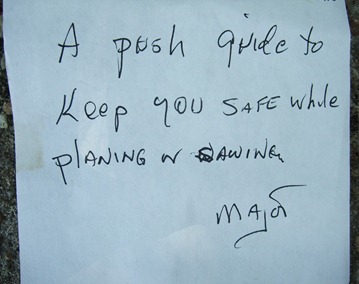 A push guide to
Keep YOU SAFE while
planing N SAWING
MAJOR